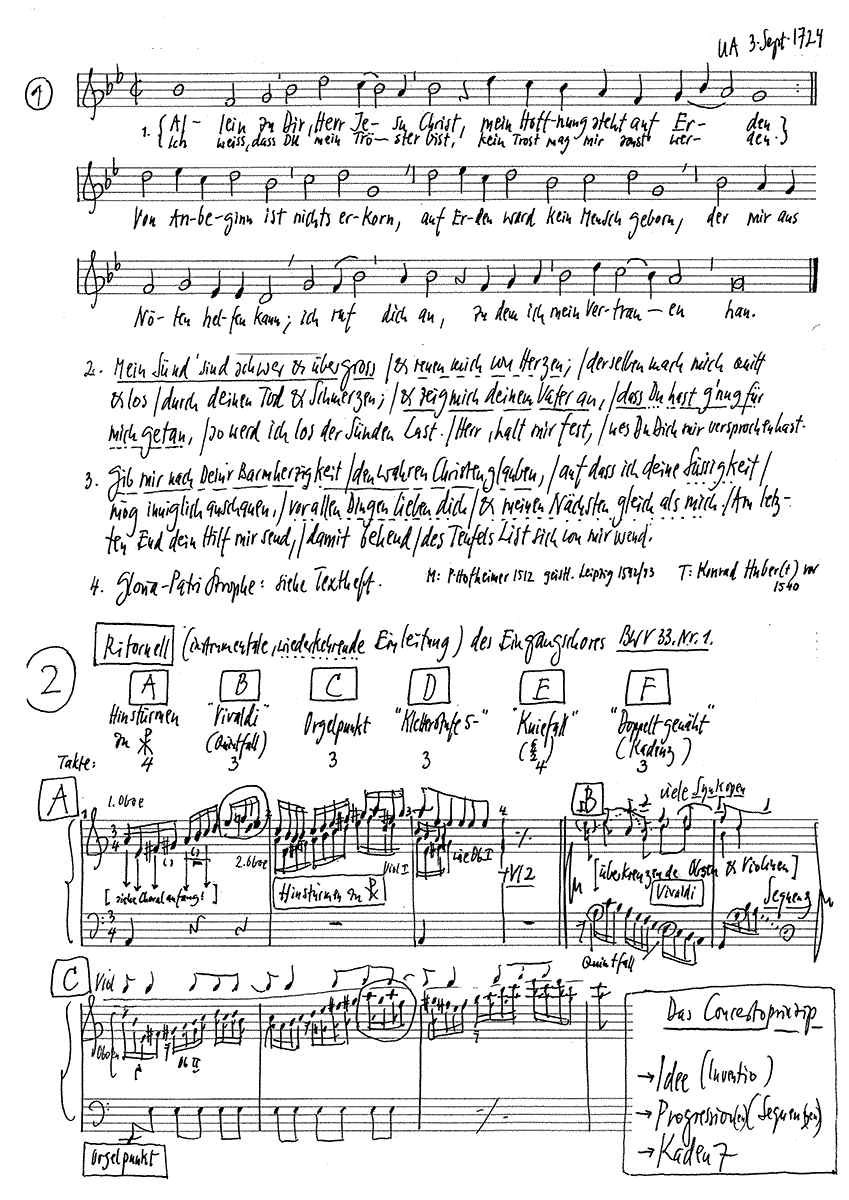 UA 3. Sept. 1724
1
1. { Al - lein zu Dir, Herr Je - su Christ, mein Hoff-nung steht auf Er - den }
Ich weiss, dass Du mein Trö - ster bist, kein Trost mag mir sonst wer - den.
Von An-be-ginn ist nichts er-korn, auf Er-den ward kein Mensch geborn, der mir aus
Nö - ten hel-fen kann; ich ruf dich an, zu dem ich mein Ver-trau — en han.
2. Mein Sünd' sind schwer & übergross / & reuen mich von Herzen; / derselben mach mich quitt
& los / durch deinen Tod & Schmerzen; / & zeig mich deinem Vater an, / dass Du hast g'nug für
mich getan, / so werd ich los der Sünden Last. / Herr, halt mir fest, / wes Du Dich mir versprochen hast.
3. Gib mir nach Dein'r Barmherzigkeit / den wahren Christenglauben, / auf dass ich deine Süssigkeit /
mög inniglich anschauen, / vor allen Dingen lieben dich / & meinen Nächsten gleich als mich. / Am letz-
ten End dein Hilf mir send, / damit behend / des Teufels List sich von mir wend.
4. Gloria-Patri Strophe: siehe Textheft.
M: P. Hofheimer 1512 geistl. Leipzig 1542/43 T: Konrad Huber(t) vor
1540
2
Ritornell (instrumentale, wiederkehrende Einleitung) des Eingangschores BWV 33. Nr. 1.
A B C D E F
Hinstürmen zu "Vivaldi" (Quintfall) Orgelpunkt "Kletterstufe 5-" "Kniefall" "Doppelt genäht" (Kadenz)
Takte: 4 3 3 3 4 3
A
1. Oboe
2. Oboe
Viol I
wie Ob I
+Vl 2
[siehe Choralanfang!]
Hinstürmen zu
B
viele Synkopen
[überkreuzende Oboen & Violinen]
Vivaldi
Sequenz
Quintfall
C
Viol
Oboen
Ob II
Orgelpunkt
Das Concertoprinzip
→ Idee (Inventio)
→ Progression(en) (Sequenz(en))
→ Kadenz